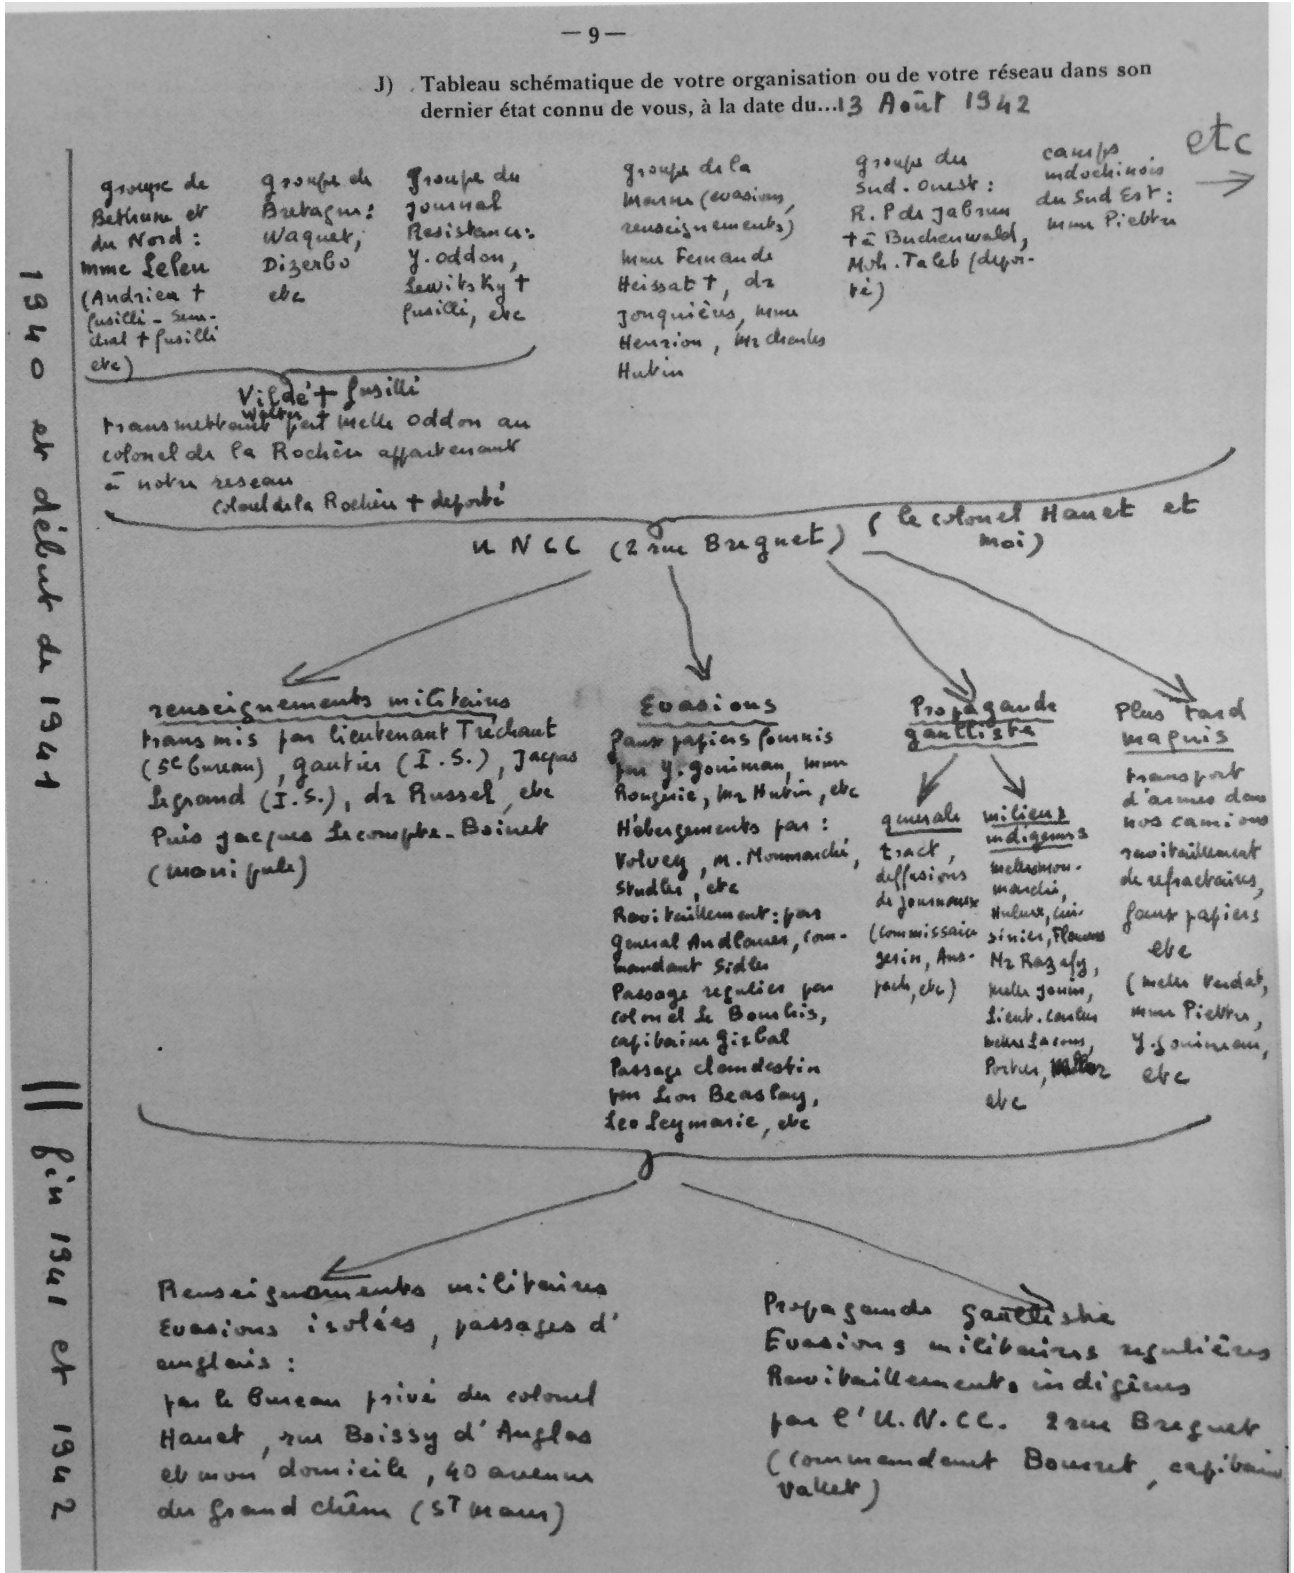 — 9 —
J) Tableau schématique de votre organisation ou de votre réseau dans son
dernier état connu de vous, à la date du...13 Août 1942
etc
groupe de
Bethune et
du Nord :
mme Leleu
(Andrieu †
fusillé - Sené-
chal † fusillé
etc)
groupe de
Bretagne :
Waquet,
Dizerbo
etc
groupe du
journal
Resistance :
Y. Oddon,
Lewitsky †
fusillé, etc
groupe de la
Marne (evasions,
renseignements)
mme Fernande
Heissat †, dr
Jonquières, mme
Henrion, Mr Charles
Hubin
groupe du
Sud-Ouest :
R. P de Jabrun
† à Buchenwald,
Moh. Taleb (depor-
té)
camps
indochinois
du Sud Est :
mme Piettre
Vildé † fusillé
Walter †
transmettant par Melle Oddon au
colonel de la Rochère appartenant
à notre reseau
colonel de la Rochère † deporté
U N C C (2 rue Breguet) (le colonel Hauet et
moi)
1940 et début de 1941
renseignements militaires
transmis par lieutenant Tréchaut
(5e bureau), Gautier (I.S.), Jacques
Legrand (I.S.), dr Russel, etc
Puis Jacques Lecompte-Boinet
(manipule)
Evasions
faux papiers fournis
par Y. Gouineau, mme
Rougerie, Mr Hubin, etc
Hébergements par :
Volvey, M. Monmarché,
Studler, etc
Ravitaillement : par
general Andlauer, com-
mandant Sidler
Passage regulier par
colonel Le Bourhis,
capitaine Girbal
Passage clandestin
par Léon Beaslay,
Leo Leymarie, etc
Propagande
gaulliste
generale
tract,
diffusions
de journaux
(commissaire
gerin, Ans-
pach, etc)
milieux
indigenes
melles Mon-
marché,
sinier, Florens
Mr Razafy,
melle Jouin,
Lieut.
etc
Plus tard
maquis
transport
d'armes dans
nos camions
ravitaillement
de refractaires,
faux papiers
etc
(melle Verdat,
mme Piettre,
Y. Gouineau,
etc
fin 1941 et 1942
Renseignements militaires
Evasions isolées, passages d'
anglais :
par le bureau privé du colonel
Hauet, rue Boissy d'Anglas
et mon domicile, 40 avenue
du Grand Chêne (St Maur)
Propagande gaulliste
Evasions militaires regulières
Ravitaillements indigènes
par l'U.N.CC. 2 rue Breguet
(Commandant Bourret, capitaine
Vallet)